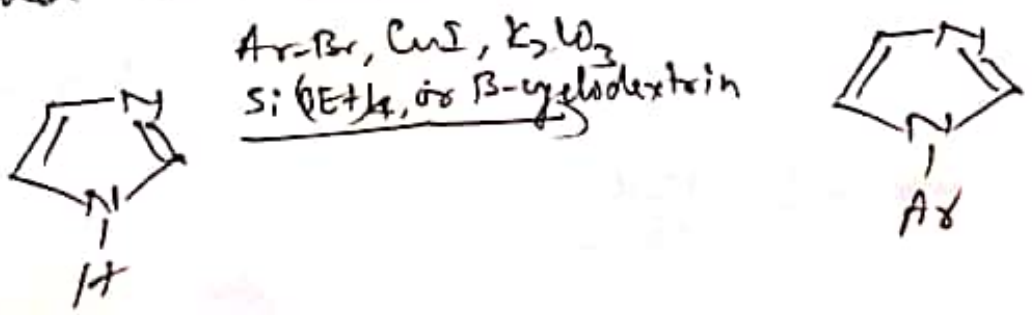 Ar-Br, CuI, K2CO3
Si(OEt)4, or β-cyclodextrin
N
N
H
N
N
Ar